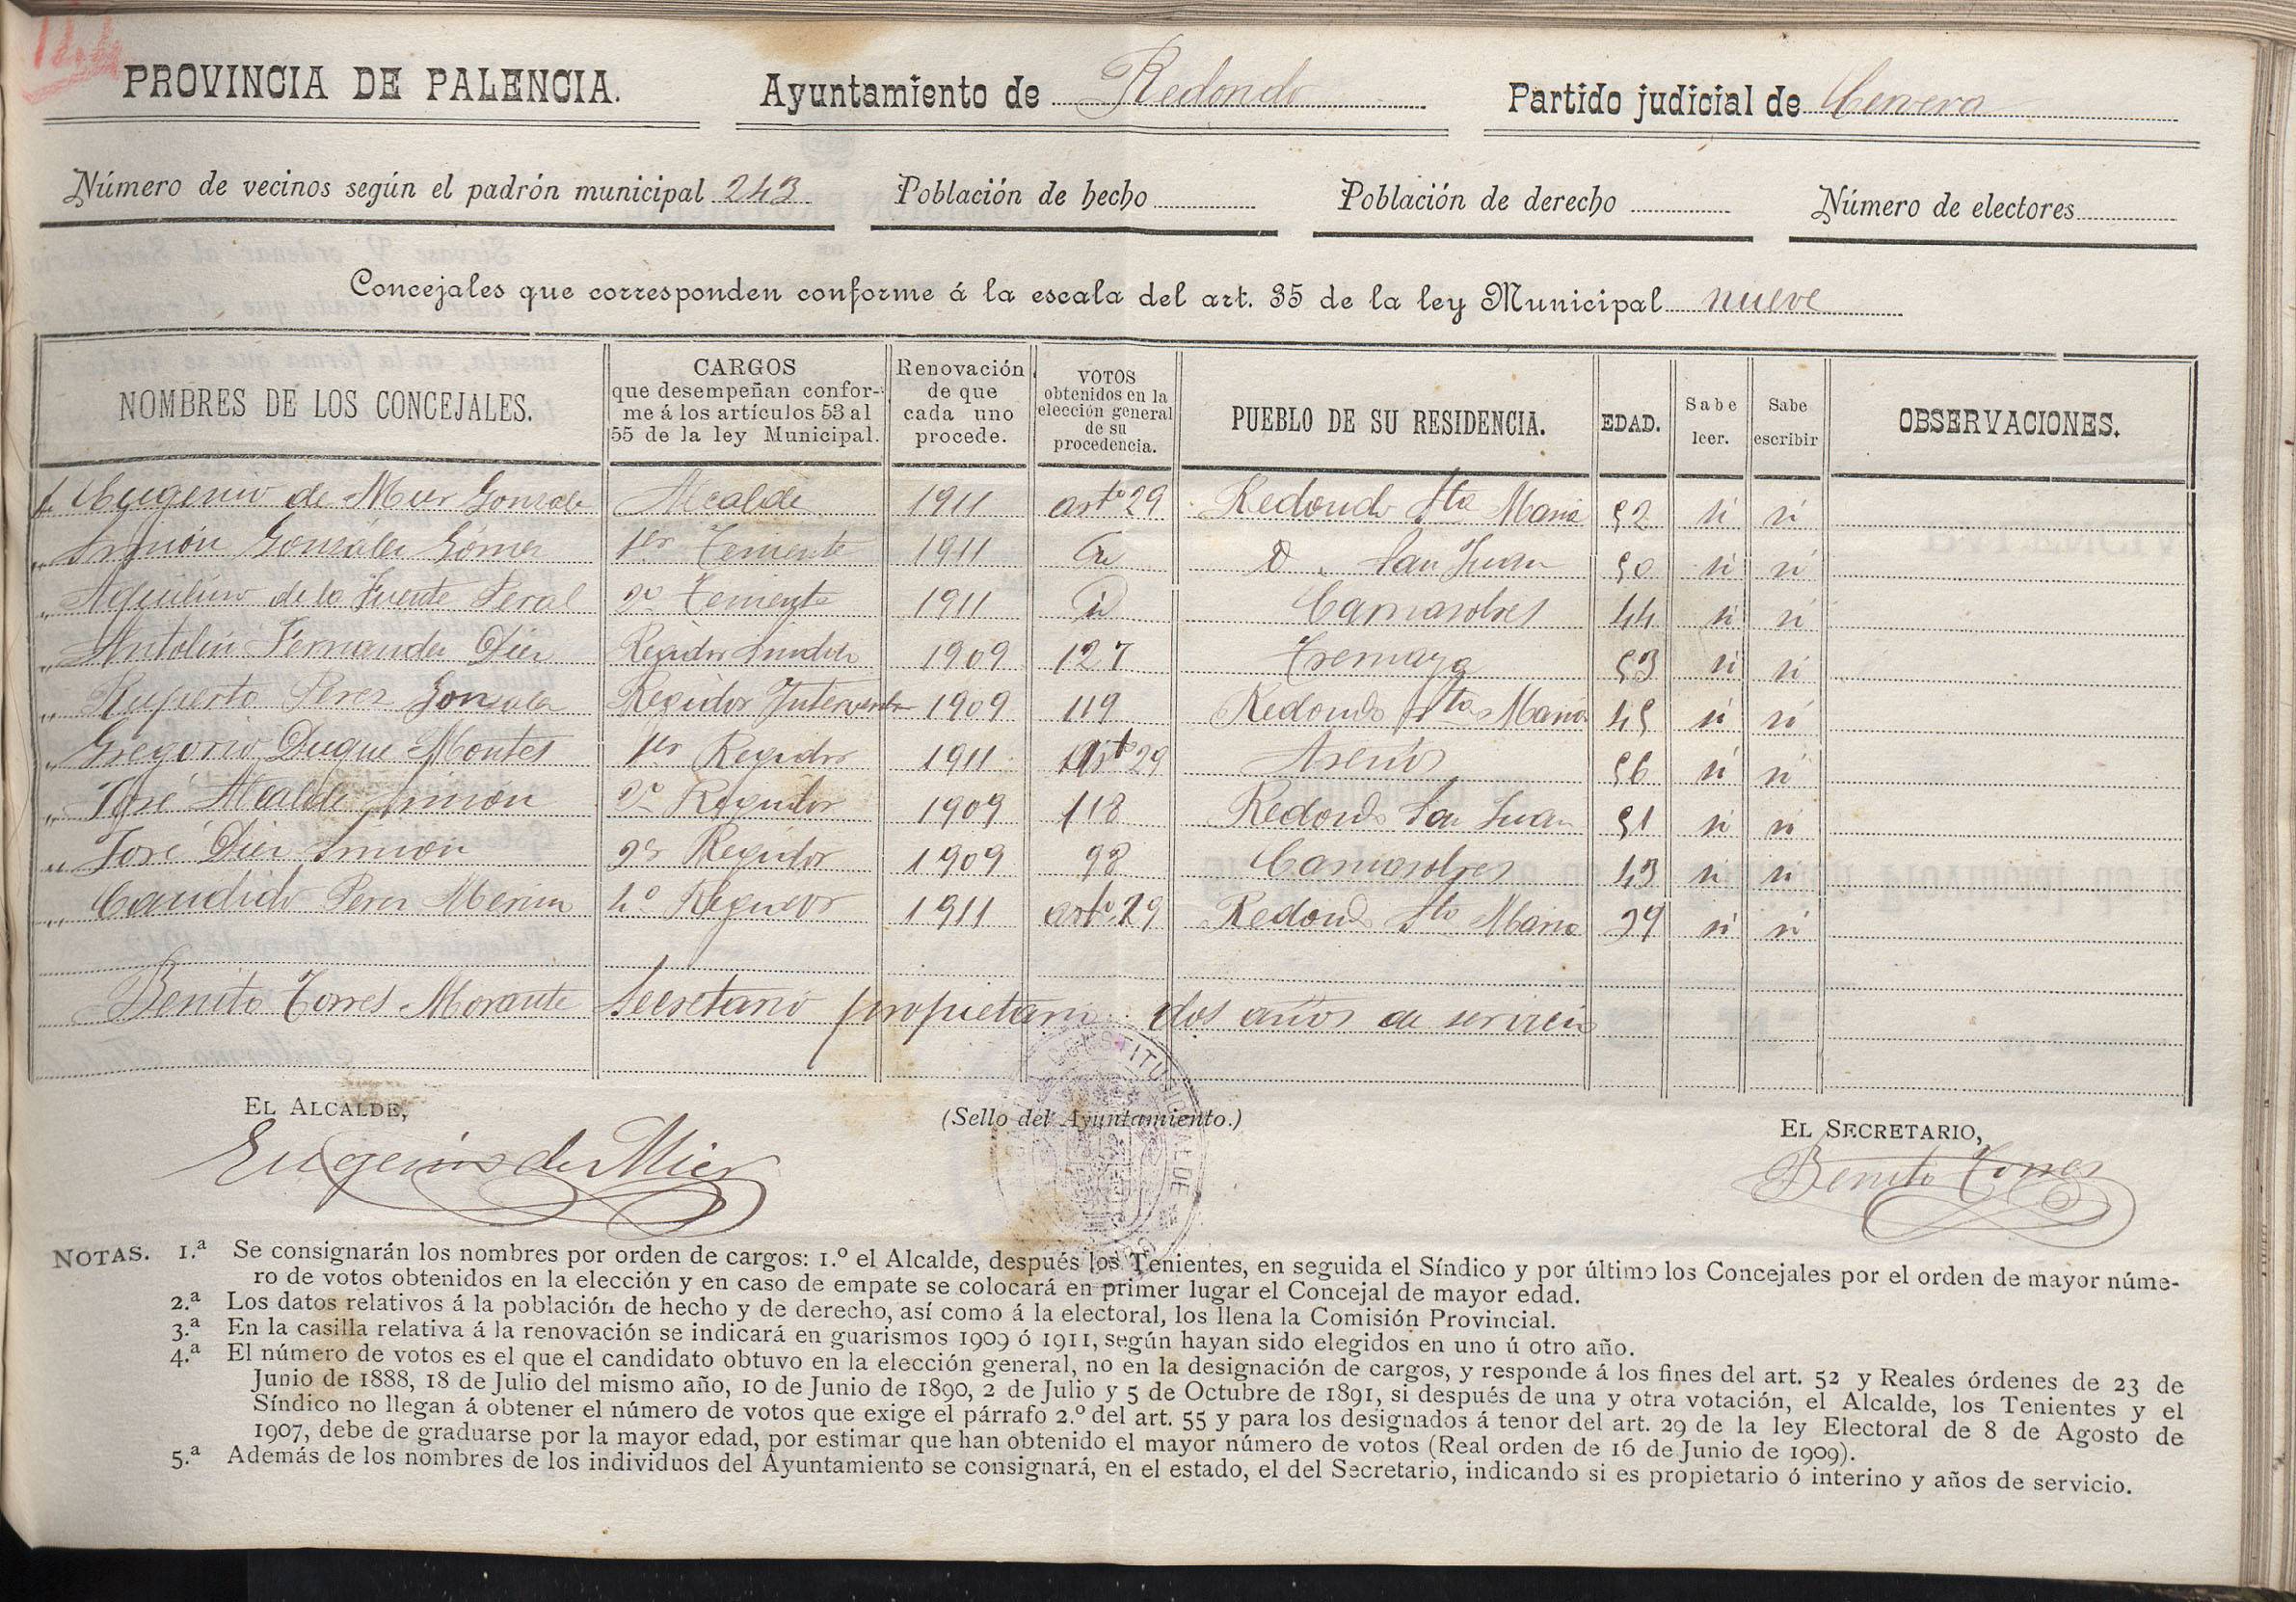 PROVINCIA DE PALENCIA.
Ayuntamiento de Redondo
Partido judicial de Cervera
Número de vecinos según el padrón municipal 243
Población de hecho
Población de derecho
Número de electores
Concejales que corresponden conforme á la escala del art. 35 de la ley Municipal nueve
NOMBRES DE LOS CONCEJALES.
CARGOS
que desempeñan confor-
me á los artículos 53 al
55 de la ley Municipal.
Renovación
de que
cada uno
procede.
VOTOS
obtenidos en la
elección general
de su
procedencia.
PUEBLO DE SU RESIDENCIA.
EDAD.
Sabe
leer.
Sabe
escribir
OBSERVACIONES.
Eugenio de Mier Gonzale Alcalde 1911 arto 29 Redondo Sta Maria 52 si si
" Simón González Gómez 1er Teniente 1911 San Juan 50 si si
" Aquilino de la Fuente Peral 2º Teniente 1911 Camasobres 44 si si
" Antolín Fernandez Diez Regidor Sindico 1909 127 Tremaya 53 si si
" Ruperto Perez Gonzalez Regidor Interventor 1909 119 Redondo Sta Maria 45 si si
" Gregorio Duque Montes 1er Regidor 1911 Art 29 Areños 56 si si
" José Alcalde Simón 2º Regidor 1909 118 Redondo San Juan 51 si si
" José Diez Simón 3er Regidor 1909 98 Camasobres 43 si si
" Candido Perez Merino 4º Regidor 1911 arto 29 Redondo Sta Maria 39 si si
Benito Torres Morante Secretario propietario dos años de servicio
EL ALCALDE,
Eugenio de Mier
(Sello del Ayuntamiento.)
CONSTITUCIONAL DE
EL SECRETARIO,
Benito Torres
NOTAS. 1.ª Se consignarán los nombres por orden de cargos: 1.º el Alcalde, después los Tenientes, en seguida el Síndico y por último los Concejales por el orden de mayor núme-
ro de votos obtenidos en la elección y en caso de empate se colocará en primer lugar el Concejal de mayor edad.
2.ª Los datos relativos á la población de hecho y de derecho, así como á la electoral, los llena la Comisión Provincial.
3.ª En la casilla relativa á la renovación se indicará en guarismos 1909 ó 1911, según hayan sido elegidos en uno ú otro año.
4.ª El número de votos es el que el candidato obtuvo en la elección general, no en la designación de cargos, y responde á los fines del art. 52 y Reales órdenes de 23 de
Junio de 1888, 18 de Julio del mismo año, 10 de Junio de 1890, 2 de Julio y 5 de Octubre de 1891, si después de una y otra votación, el Alcalde, los Tenientes y el
Síndico no llegan á obtener el número de votos que exige el párrafo 2.º del art. 55 y para los designados á tenor del art. 29 de la ley Electoral de 8 de Agosto de
1907, debe de graduarse por la mayor edad, por estimar que han obtenido el mayor número de votos (Real orden de 16 de Junio de 1909).
5.ª Además de los nombres de los individuos del Ayuntamiento se consignará, en el estado, el del Secretario, indicando si es propietario ó interino y años de servicio.